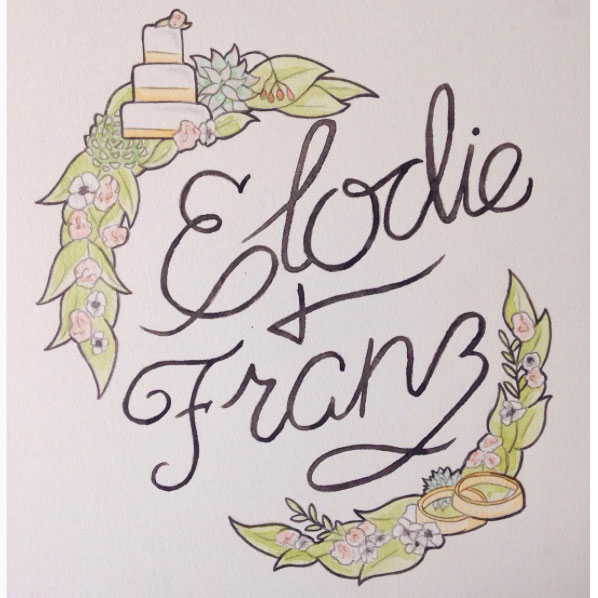 Elodie
+
Franz